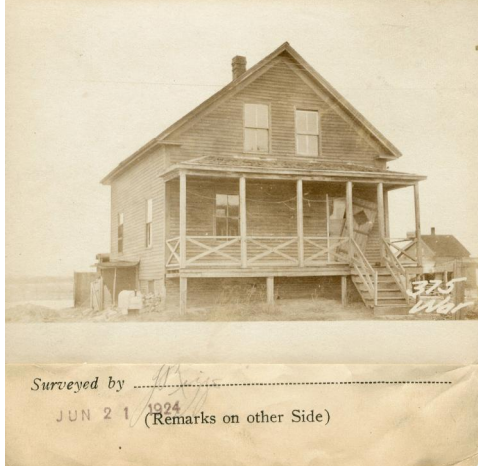 375
War
Surveyed by
JUN 21 1924
(Remarks on other Side)